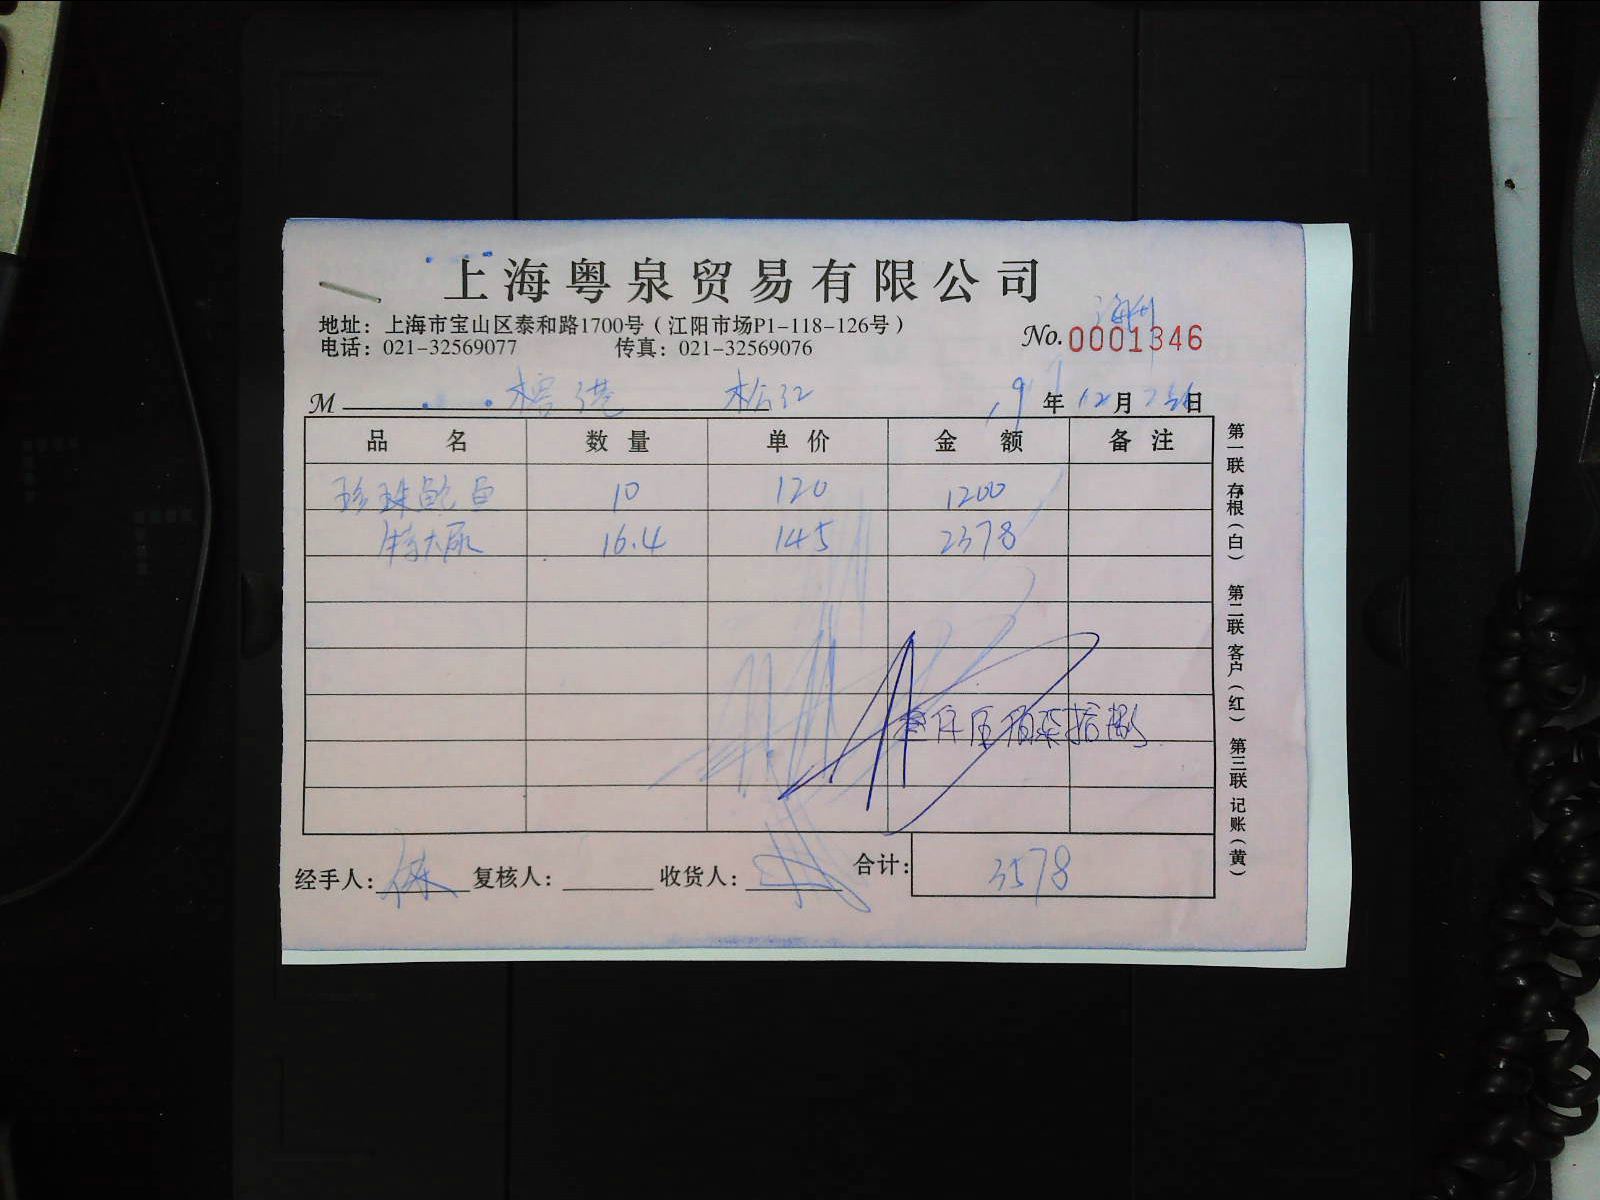 上海粤泉贸易有限公司
地址：上海市宝山区泰和路1700号（江阳市场P1-118-126号）
No.0001346
电话：021-32569077 传真：021-32569076
M 松江 19年12月 日
品名 数量 单价 金额 备注
珍珠鲍鱼 10 120 1200
特大尿 16.4 145 2378
叁仟伍佰柒拾捌
经手人： 复核人： 收货人： 合计：3578
第一联 存根（白） 第二联 客户（红） 第三联 记账（黄）